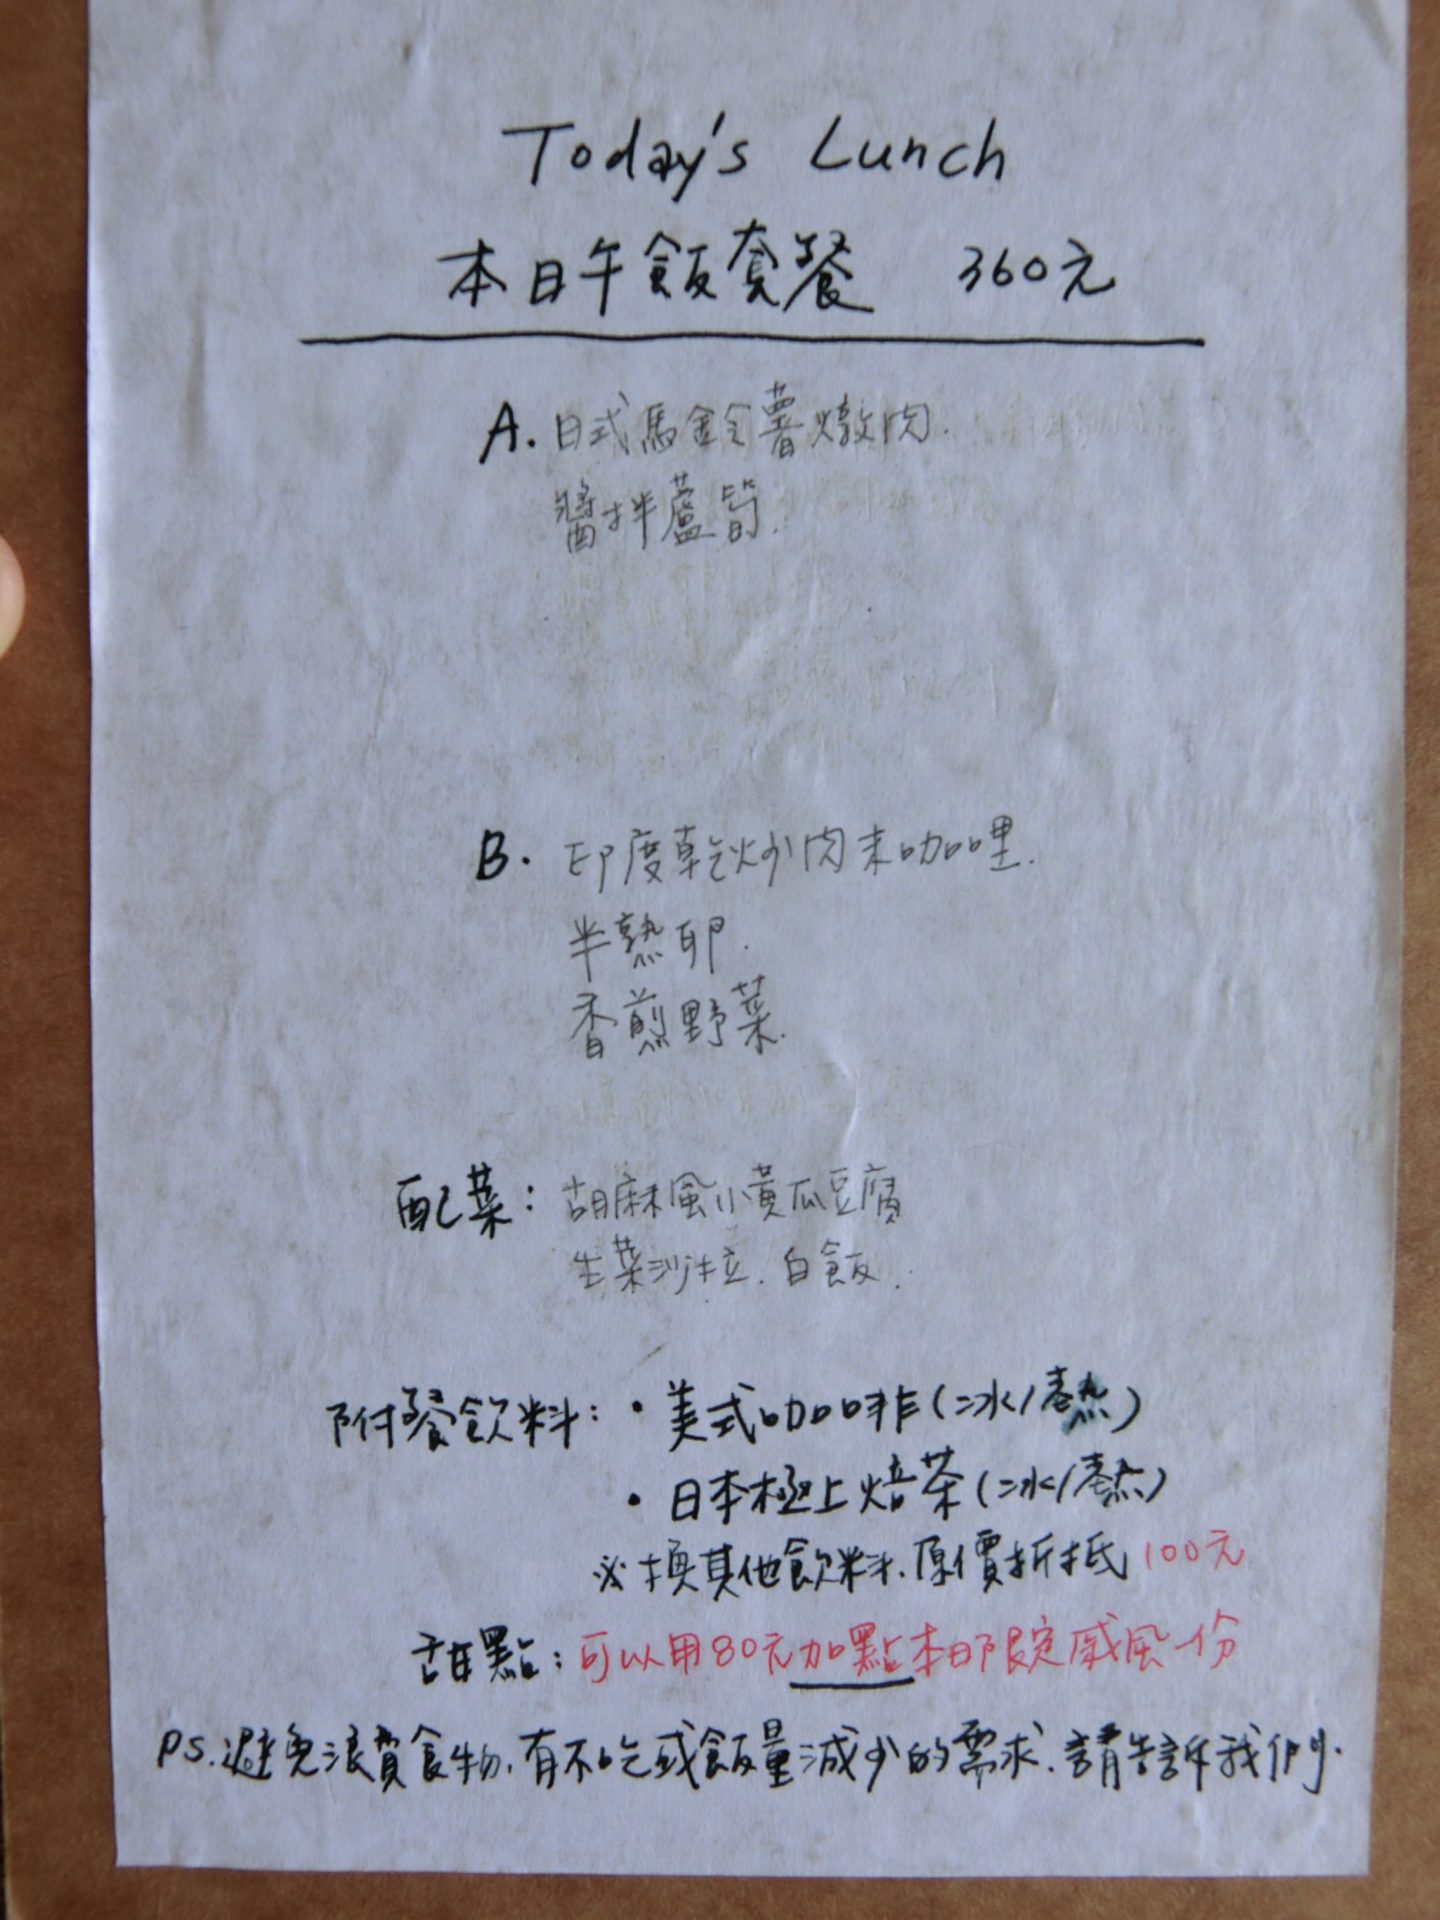 Today's Lunch
本日午飯套餐 360元
A. 日式馬鈴薯燉肉.
醬拌蘆筍.
B. 印度乾炒肉末咖哩.
半熟卵.
香煎野菜.
配菜: 胡麻風小黃瓜豆腐
生菜沙拉. 白飯.
附餐飲料: • 美式咖啡(冰/熱)
• 日本極上焙茶(冰/熱)
※換其他飲料.原價折抵100元
甜點: 可以用80元加點本日限定戚風一份
PS.避免浪費食物.有不吃或飯量減少的需求.請告訴我們.